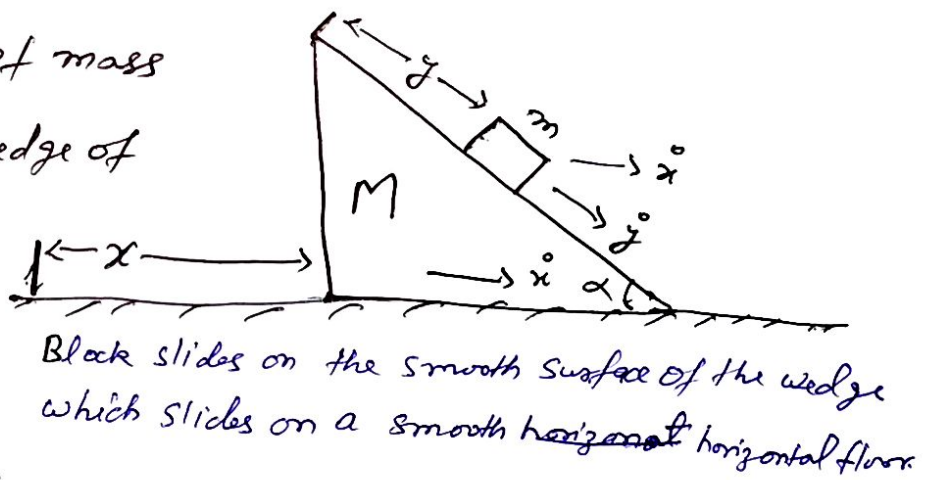 of mass
edge of
y
m
ẋ
ẏ
M
x
ẋ
α
Block slides on the smooth surface of the wedge
which slides on a smooth horizontal floor.